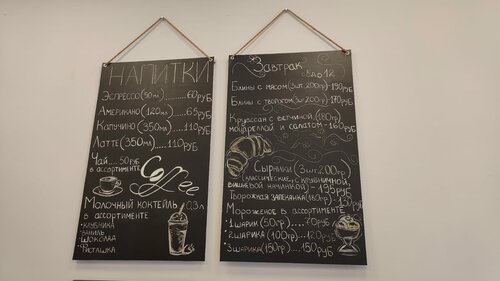 НАПИТКИ
Эспрессо (50мл)........60руб
Американо (120мл)....65руб
Капучино (350мл)....110руб
Латте (350мл)....110руб
Чай....50руб
в ассортименте
Coffee
Молочный коктейль 0,3л
в ассортименте
• клубника
• ваниль
• шоколад
• фисташка
Завтрак
до 12
Блины с мясом (3шт. 200гр)-190руб
Блины с творогом (3шт 200гр)-170руб
Круассан с ветчиной, (180гр)
моцареллой и салатом-160руб
Сырники (3шт 200гр)
(классические, с клубничной,
вишневой начинкой) - 195руб
Творожная запеканка (180гр)
Мороженое в ассортименте
• 1 шарик (50гр)......70руб
• 2 шарика (100гр)...120руб
• 3 шарика (150гр)...150руб